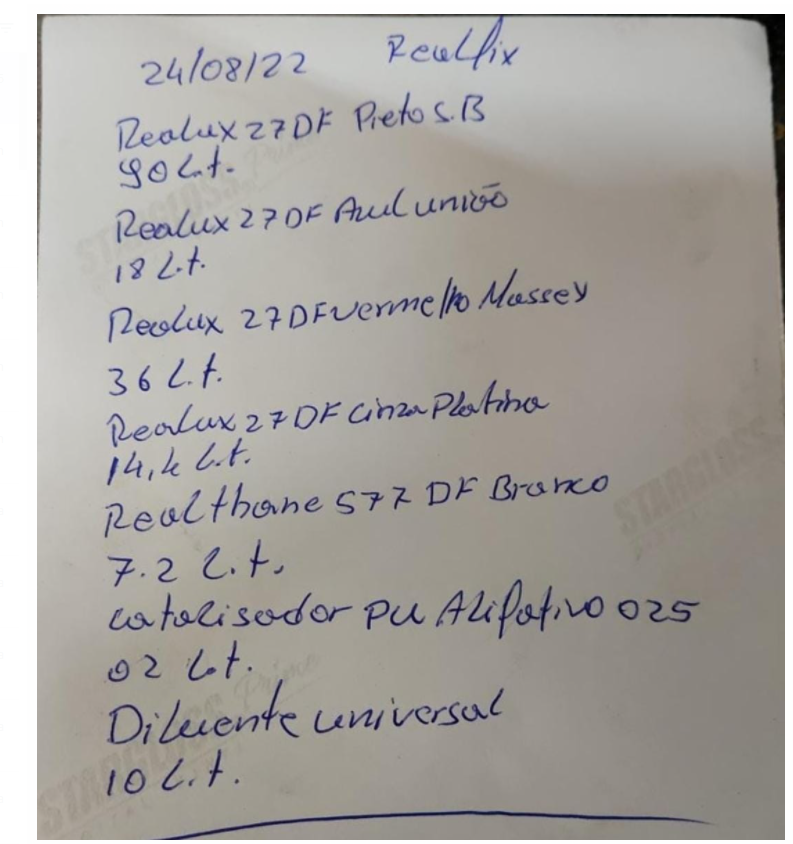 24/08/22 Realfix
Realux 27DF Preto S.B
90 L.t.
Realux 27 DF Azul união
18 L.t.
Realux 27DF vermelho Massey
36 L.t.
Realux 27DF Cinza Platina
14,4 L.t.
Realthane 577 DF Branco
7.2 L.t.
Catalisador PU Alifativo 025
02 L.t.
Diluente universal
10 L.t.
STARGLOSS Prime
STARGLOSS
STARGLOSS Prime